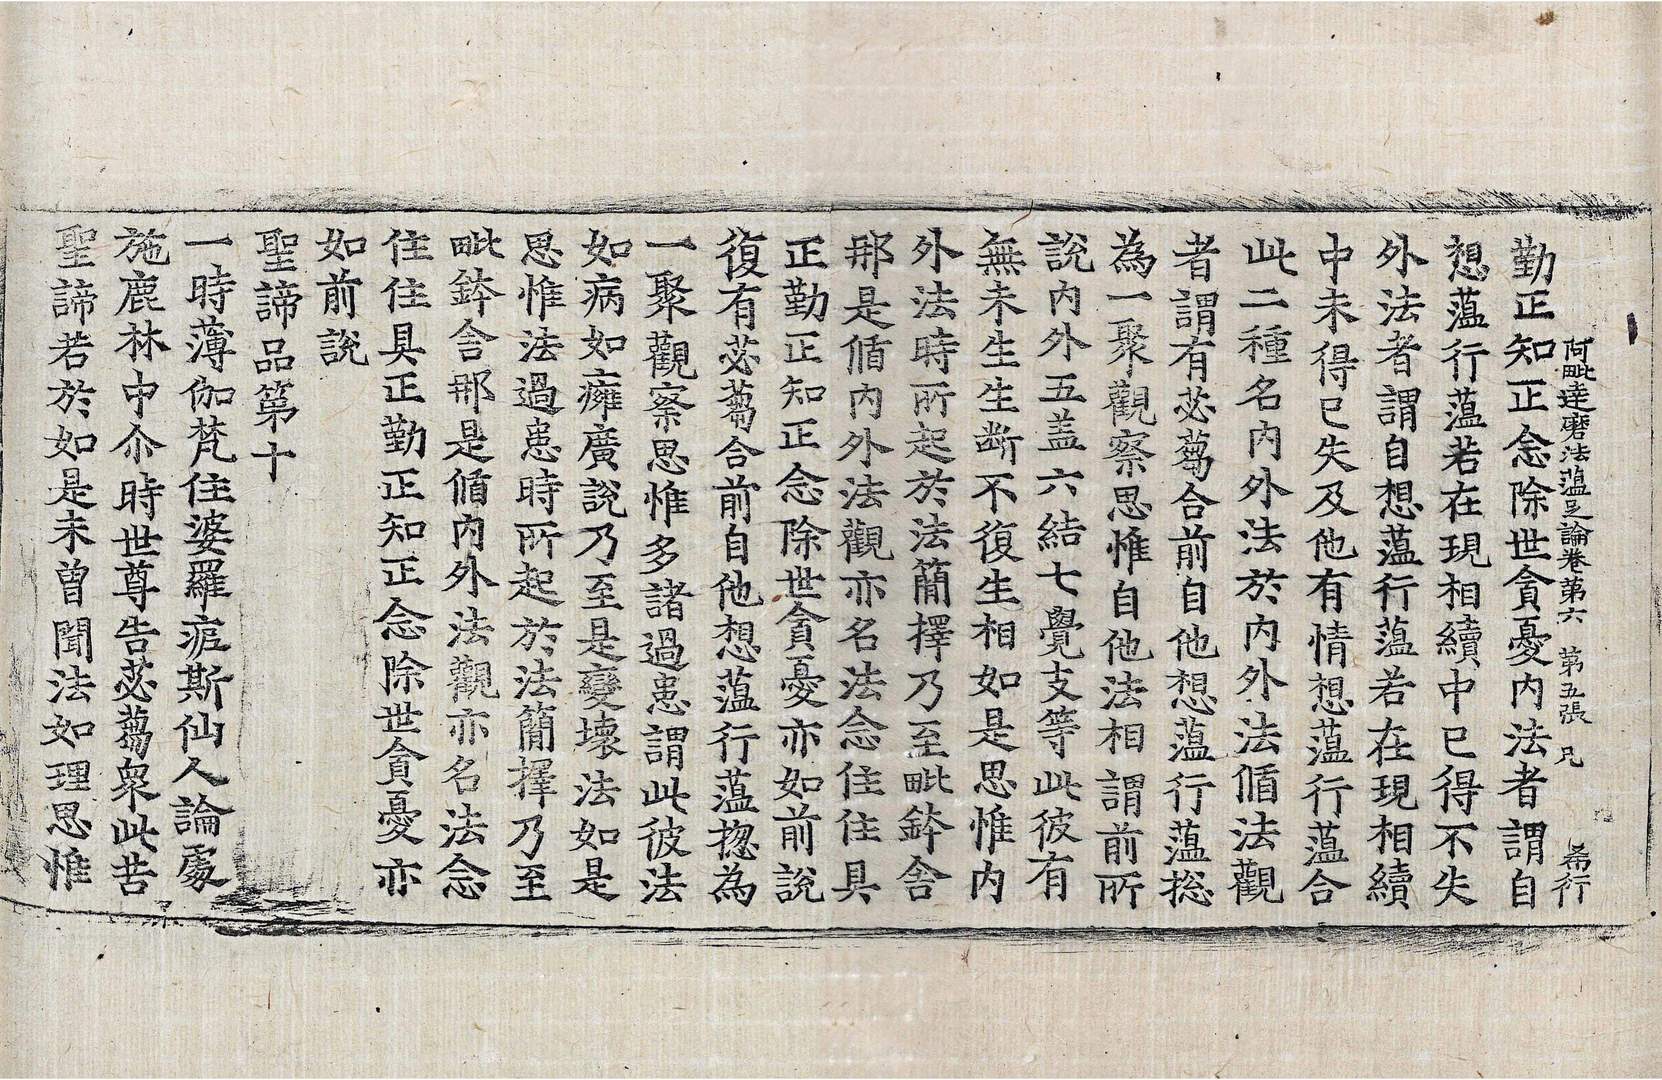 阿毗達磨法蘊足論卷第六　第五張　兄　希行
勤正知正念除世貪憂內法者謂自
想蘊行蘊若在現相續中已得不失
外法者謂自想蘊行蘊若在現相續
中未得已失及他有情想蘊行蘊合
此二種名內外法於內外法循法觀
者謂有苾蒭合前自他想蘊行蘊捴
為一聚觀察思惟自他法相謂前所
說內外五盖六結七覺支等此彼有
無未生生斷不復生相如是思惟內
外法時所起於法簡擇乃至毗鉢舍
那是循內外法觀亦名法念住住具
正勤正知正念除世貪憂亦如前說
復有苾蒭合前自他想蘊行蘊揔為
一聚觀察思惟多諸過患謂此彼法
如病如癰廣說乃至是變壞法如是
思惟法過患時所起於法簡擇乃至
毗鉢舍那是循內外法觀亦名法念
住住具正勤正知正念除世貪憂亦
如前說
聖諦品第十
一時薄伽梵住婆羅痆斯仙人論處
施鹿林中尒時世尊告苾蒭衆此苦
聖諦若於如是未曾聞法如理思惟